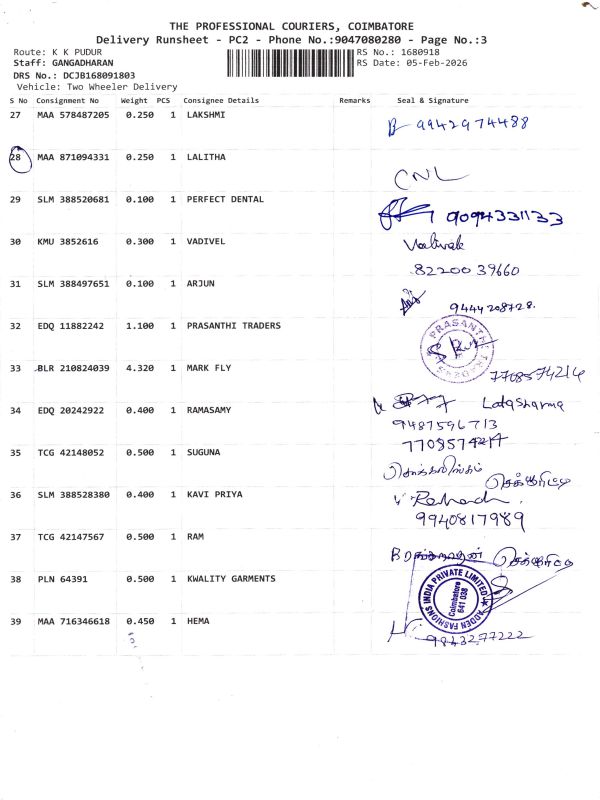 THE PROFESSIONAL COURIERS, COIMBATORE
Delivery Runsheet - PC2 - Phone No.:9047080280 - Page No.:3
Route: K K PUDUR RS No.: 1680918
Staff: GANGADHARAN RS Date: 05-Feb-2026
DRS No.: DCJB168091803
Vehicle: Two Wheeler Delivery
S No Consignment No Weight PCS Consignee Details Remarks Seal & Signature
27 MAA 578487205 0.250 1 LAKSHMI 9942974488
28 MAA 871094331 0.250 1 LALITHA CNL
29 SLM 388520681 0.100 1 PERFECT DENTAL 9094331133
30 KMU 3852616 0.300 1 VADIVEL
82200 39660
31 SLM 388497651 0.100 1 ARJUN 9444208728.
32 EDQ 11882242 1.100 1 PRASANTHI TRADERS PRASANTHI TRADERS
33 BLR 210824039 4.320 1 MARK FLY 7708574214
34 EDQ 20242922 0.400 1 RAMASAMY Latasharma
9487596713
7708574217
35 TCG 42148052 0.500 1 SUGUNA
36 SLM 388528380 0.400 1 KAVI PRIYA
9940817989
37 TCG 42147567 0.500 1 RAM
38 PLN 64391 0.500 1 KWALITY GARMENTS ADDEN FASHIONS INDIA PRIVATE LIMITED Coimbatore 641 038
39 MAA 716346618 0.450 1 HEMA 9843277222